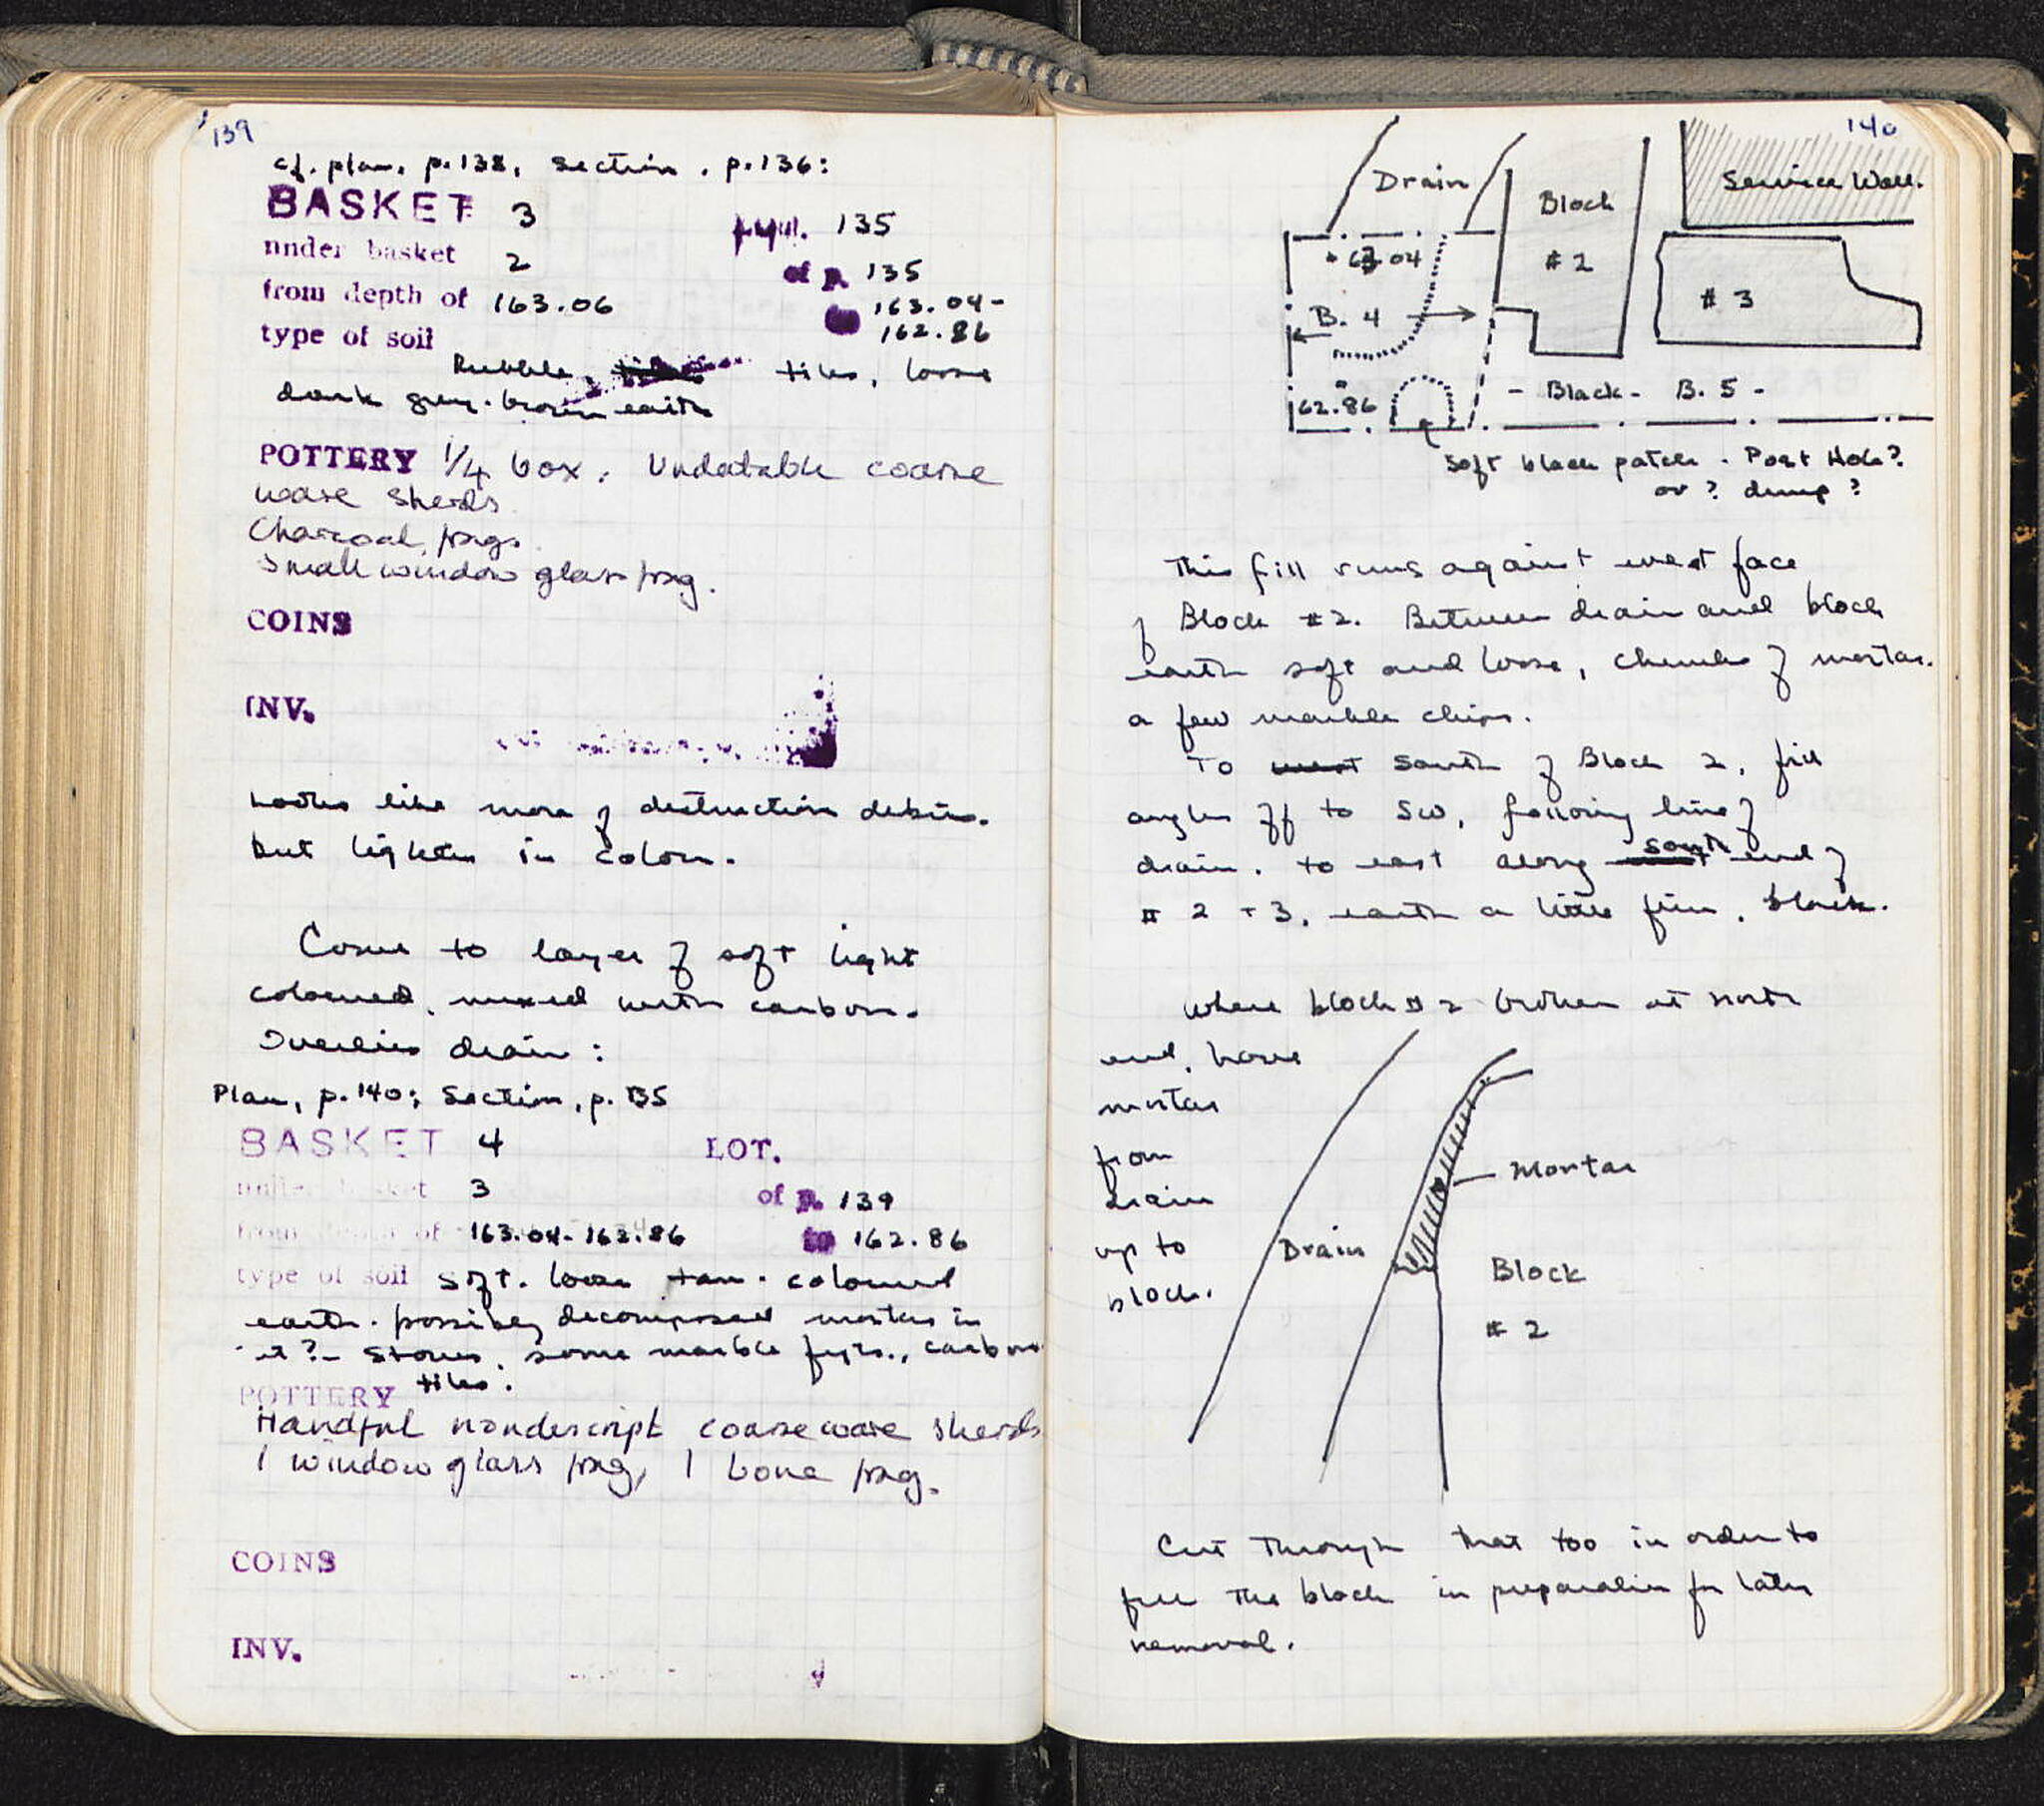 139
cf. plan, p. 138, Section, p. 136:
BASKET 3
135
under basket 2
of p. 135
from depth of 163.06
163.04-
162.86
type of soil
Rubble, tiles, loose
dark grey-brown earth
POTTERY 1/4 box. Undatable coarse
ware sherds
Charcoal frags.
Small window glass frag.
COINS
INV.
Looks like more of destruction debris.
but lighter in colour.
Come to layer of soft light
coloured, mixed with carbon.
Overlies drain:
Plan, p. 140; Section, p. 135
BASKET 4
LOT.
under basket 3
of p. 139
from depth of 163.04-163.86
to 162.86
type of soil Soft. loose tan-coloured
earth. possibly decomposed mortar in
it?- Stones, some marble fgts., carbon
tiles.
POTTERY
Handful nondescript coarse ware sherds
1 window glass frag, 1 bone frag.
COINS
INV.
140
Drain
Block
#2
Service Wall.
#3
B. 4
62.86
- Black - B. 5 -
Soft black patch - Post Hole?
or? dump?
This fill runs against west face
of Block #2. Between drain and block
earth soft and loose, chunks of mortar.
a few marble chips.
To west South of Block 2, fill
angles off to SW, following line of
drain. to east along south end of
# 2 + 3, earth a little firm, black.
Where block #2 broken at north
end, have
mortar
from
drain
up to
block.
Mortar
Drain
Block
#2
Cut through that too in order to
free the block in preparation for later
removal.